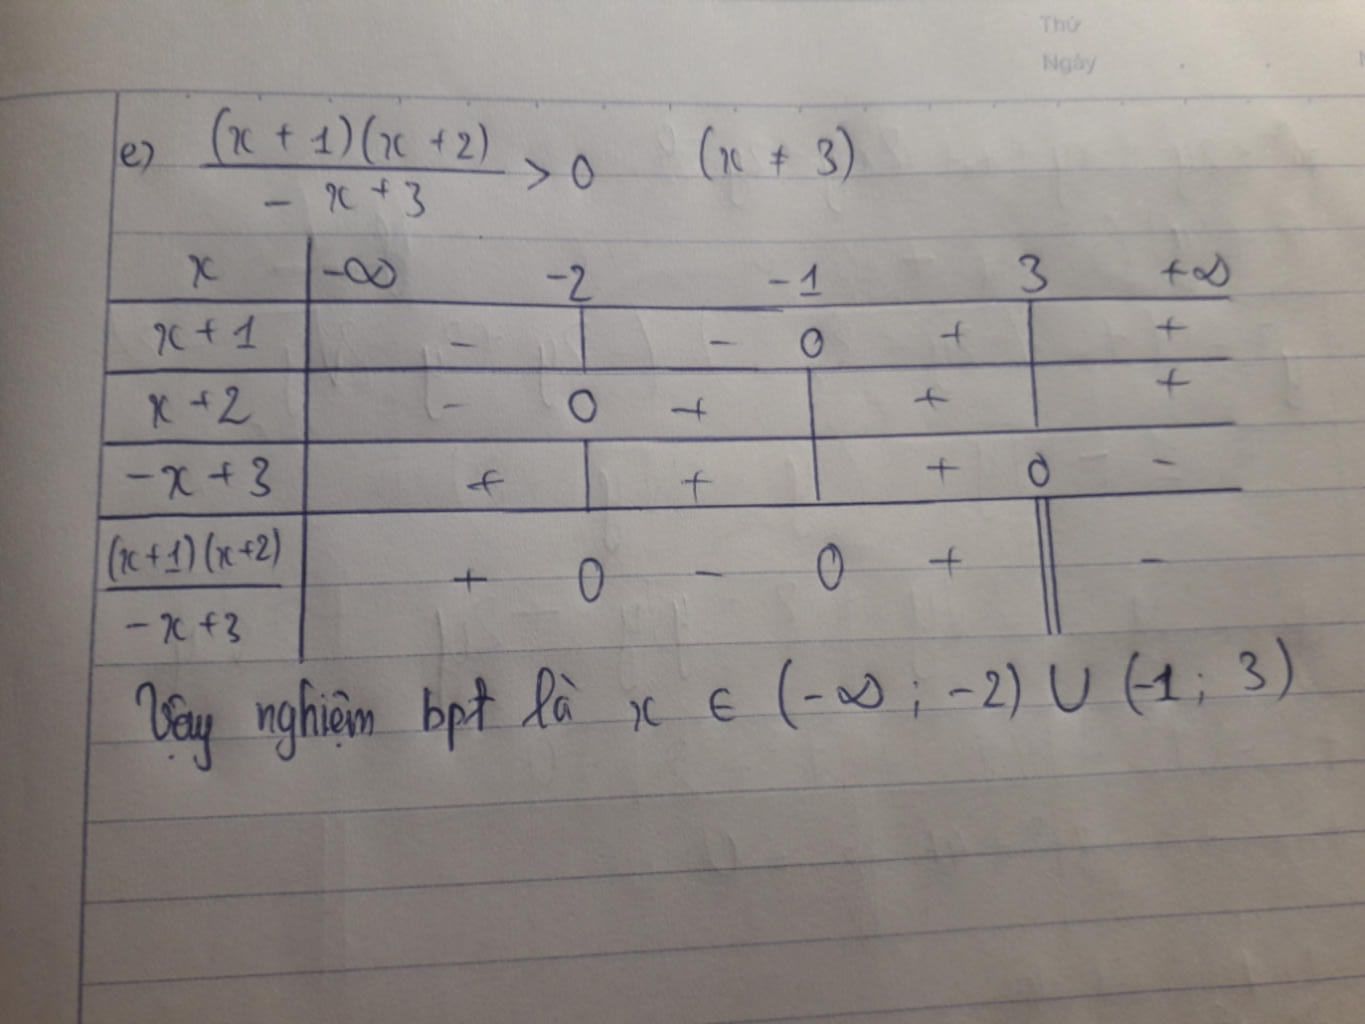 Thứ
Ngày
e) (x + 1)(x + 2) / - x + 3 > 0 (x ≠ 3)
x -∞ -2 -1 3 +∞
x + 1 - | - 0 + | +
x + 2 - 0 + | + | +
-x + 3 + | + | + 0 -
(x+1)(x+2) / -x+3 + 0 - 0 + || -
Vậy nghiệm bpt là x ∈ (-∞ ; -2) ∪ (-1 ; 3)